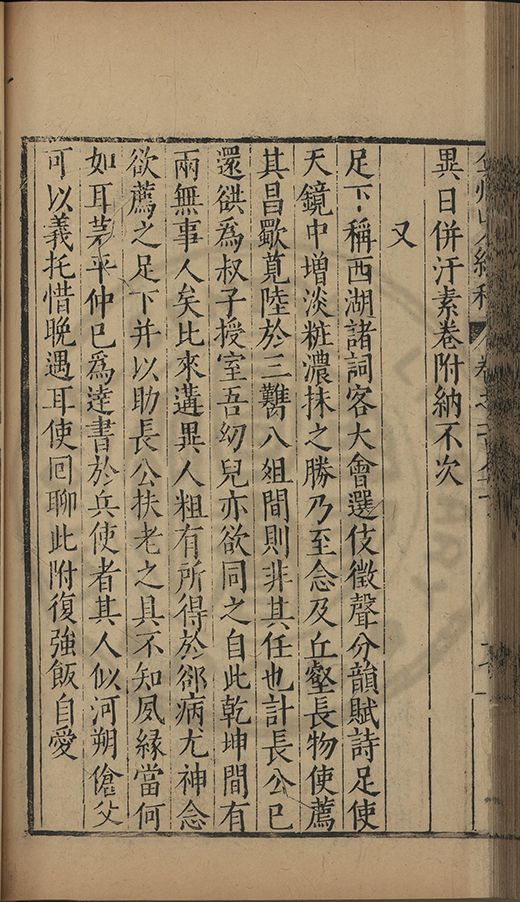 異日併汗素卷附納不次
又
足下稱西湖諸詞客大會選伎徵聲分韻賦詩足使
天鏡中增淡粧濃抹之勝乃至念及丘壑長物使薦
其昌歜莧陸於三雋八俎間則非其任也計長公已
還䤋為叔子授室吾幼兒亦欲同之自此乾坤間有
兩無事人矣比來遘異人粗有所得於郤病尤神念
欲薦之足下并以助長公扶老之具不知夙緣當何
如耳茅平仲已為達書於兵使者其人似河朔傖父
可以義托惜晚遇耳使回聊此附復強飯自愛